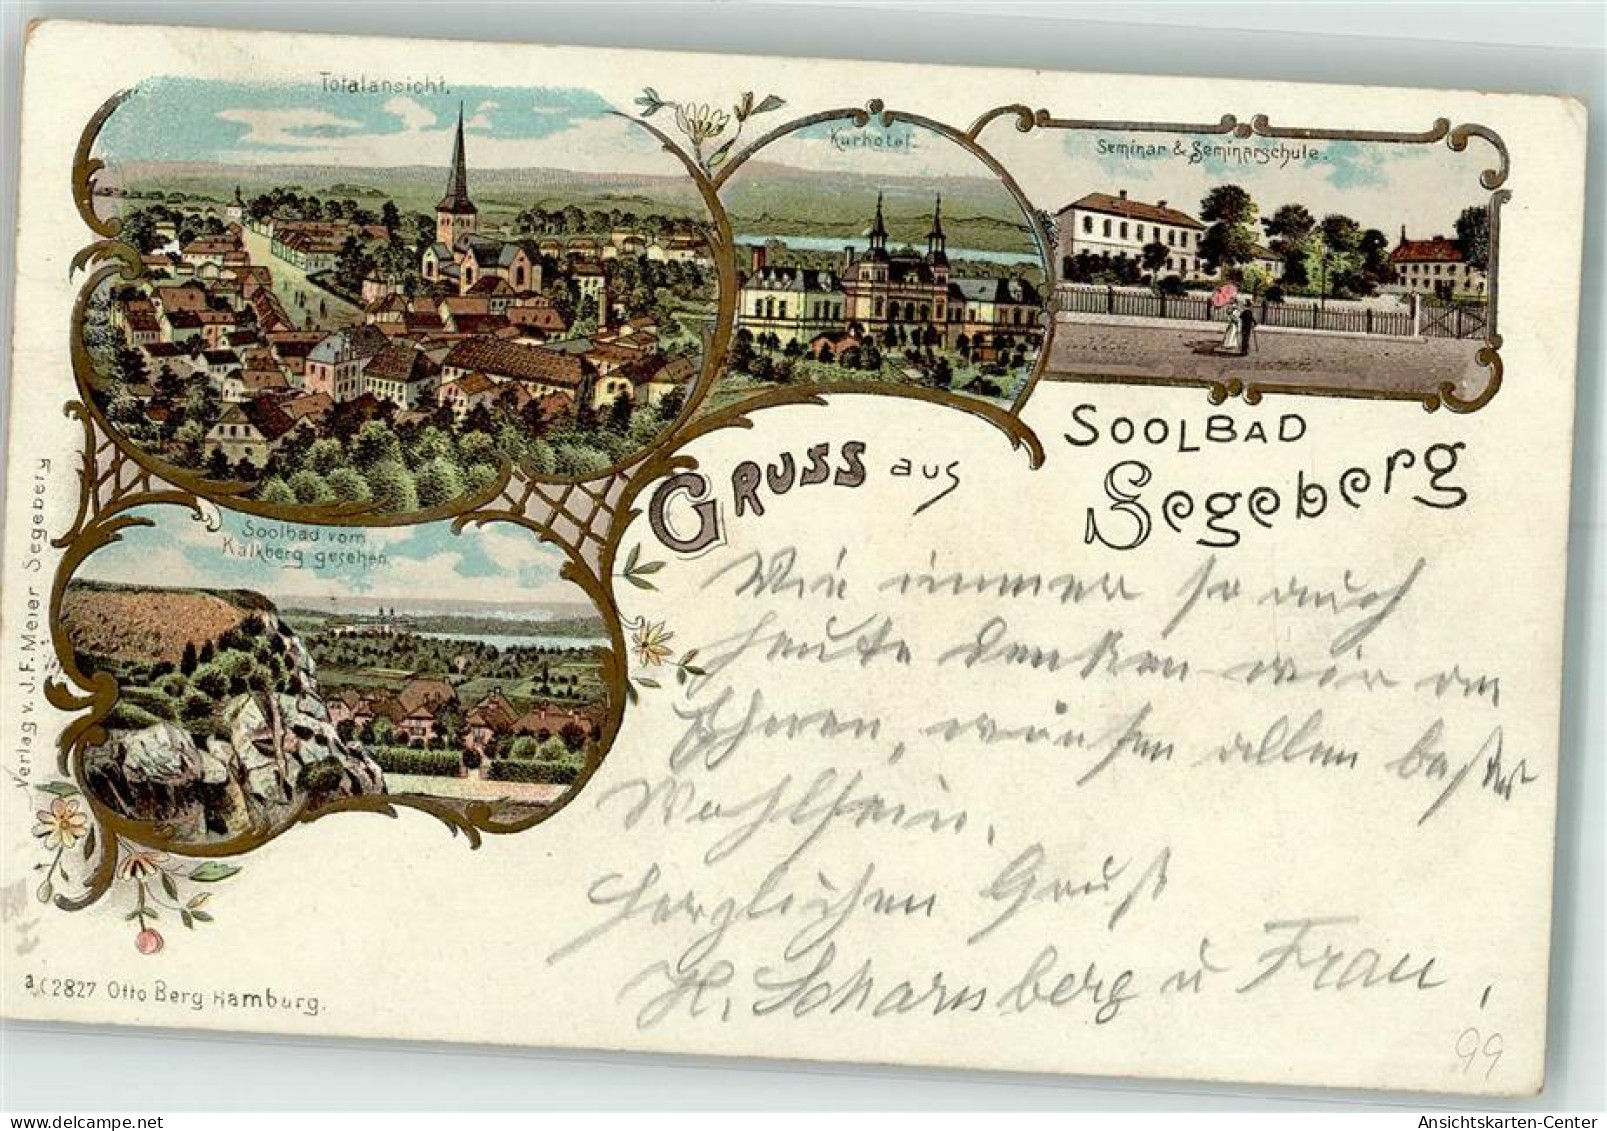 Totalansicht.
Kurhotel.
Seminar & Seminarschule.
Gruss aus
Soolbad
Segeberg
Soolbad vom
Kalkberg gesehen.
Verlag v. J. F. Meier Segeberg
Wie immer so auch
heute denken wir an
wünschen allen besten
Wohlsein.
Herzlichen Gruß
H. Scharnberg u Frau,
2827 Otto Berg Hamburg.
99
Ansichtskarten-Center